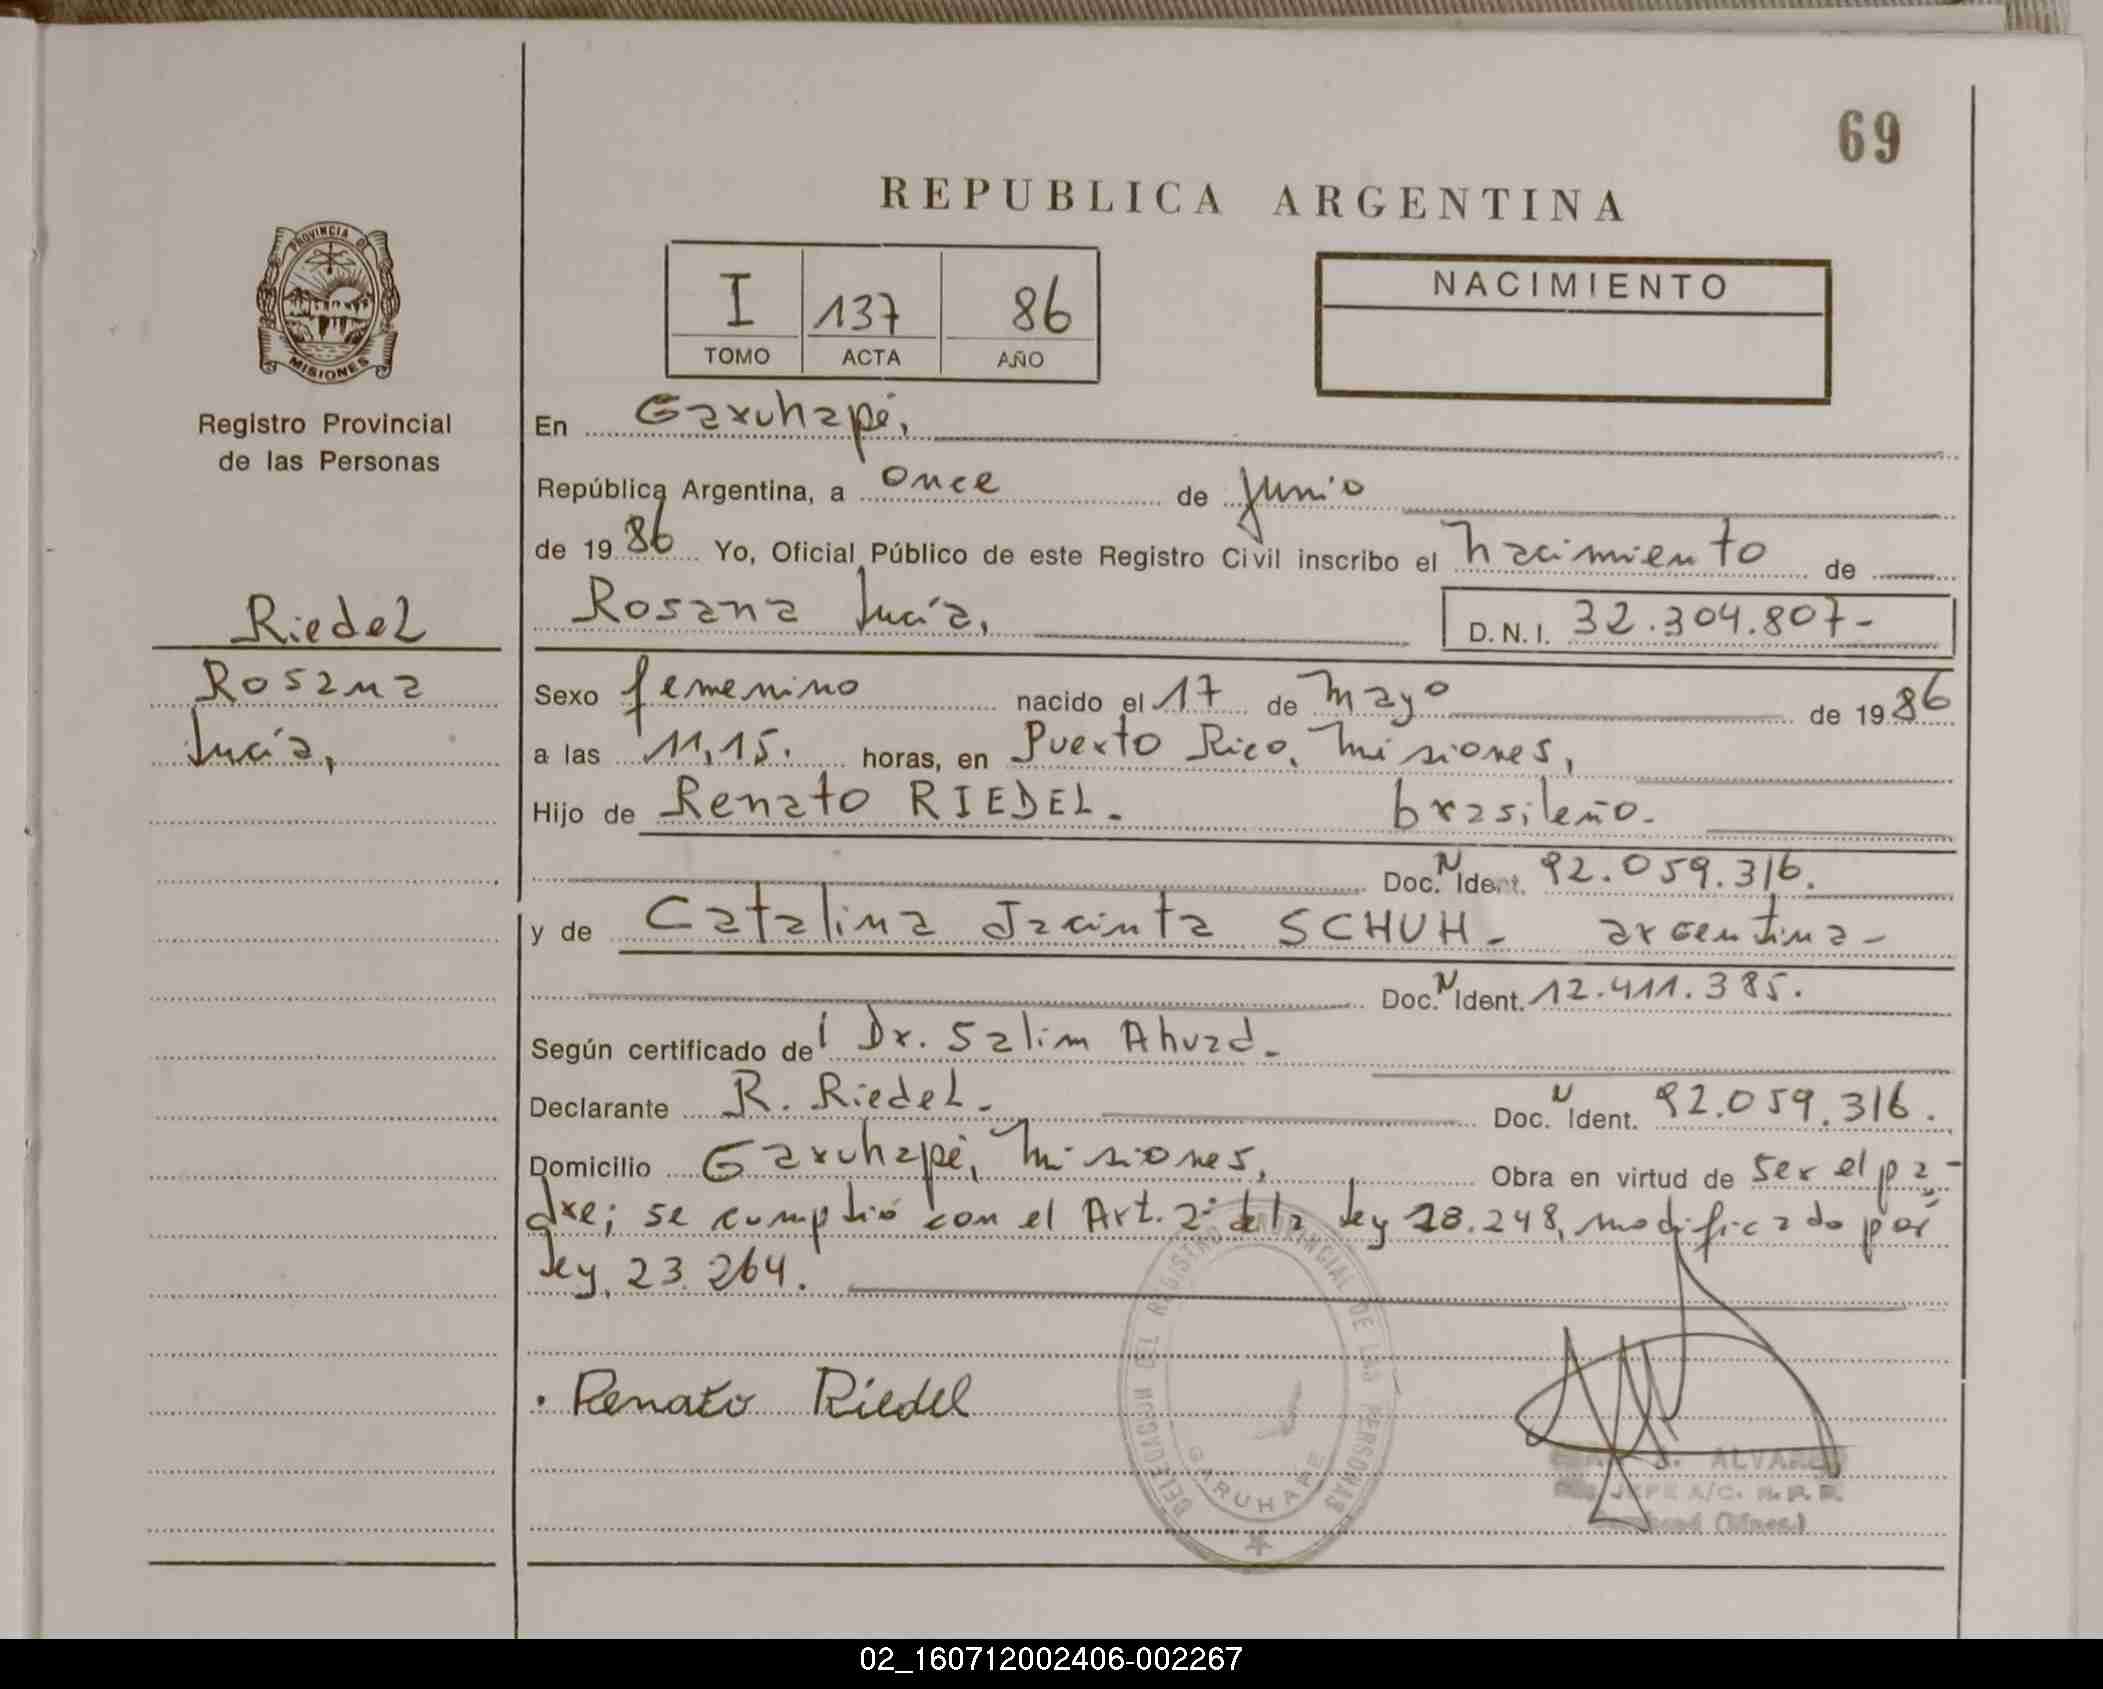 69
REPUBLICA ARGENTINA
PROVINCIA DE
MISIONES
Registro Provincial
de las Personas
I 137 86
TOMO ACTA AÑO
NACIMIENTO
En Garuhapé,
República Argentina, a once de Junio
de 1986 Yo, Oficial Público de este Registro Civil inscribo el nacimiento de
Rosana Lucía,
D.N.I. 32.304.807-
Riedel
Rosana
Lucía,
Sexo femenino nacido el 17 de Mayo de 1986
a las 11,15. horas, en Puerto Rico, Misiones,
Hijo de Renato RIEDEL. brasileño.
Doc. N Ident. 92.059.316.
y de Catalina Jacinta SCHUH- argentina-
Doc. N Ident. 12.411.385.
Según certificado del Dr. Salim Ahuad-
Declarante R. Riedel- Doc. N Ident. 92.059.316.
Domicilio Garuhapé, Misiones, Obra en virtud de ser el pa-
dre; se cumplió con el Art. 2° de la Ley 18.248, modificado por
Ley, 23.264.
. Renato Riedel
DELEGACION DEL REGISTRO PROVINCIAL DE LAS PERSONAS
GARUHAPE
ALVAREZ
JEFE A/C. R. P. P.
02_160712002406-002267